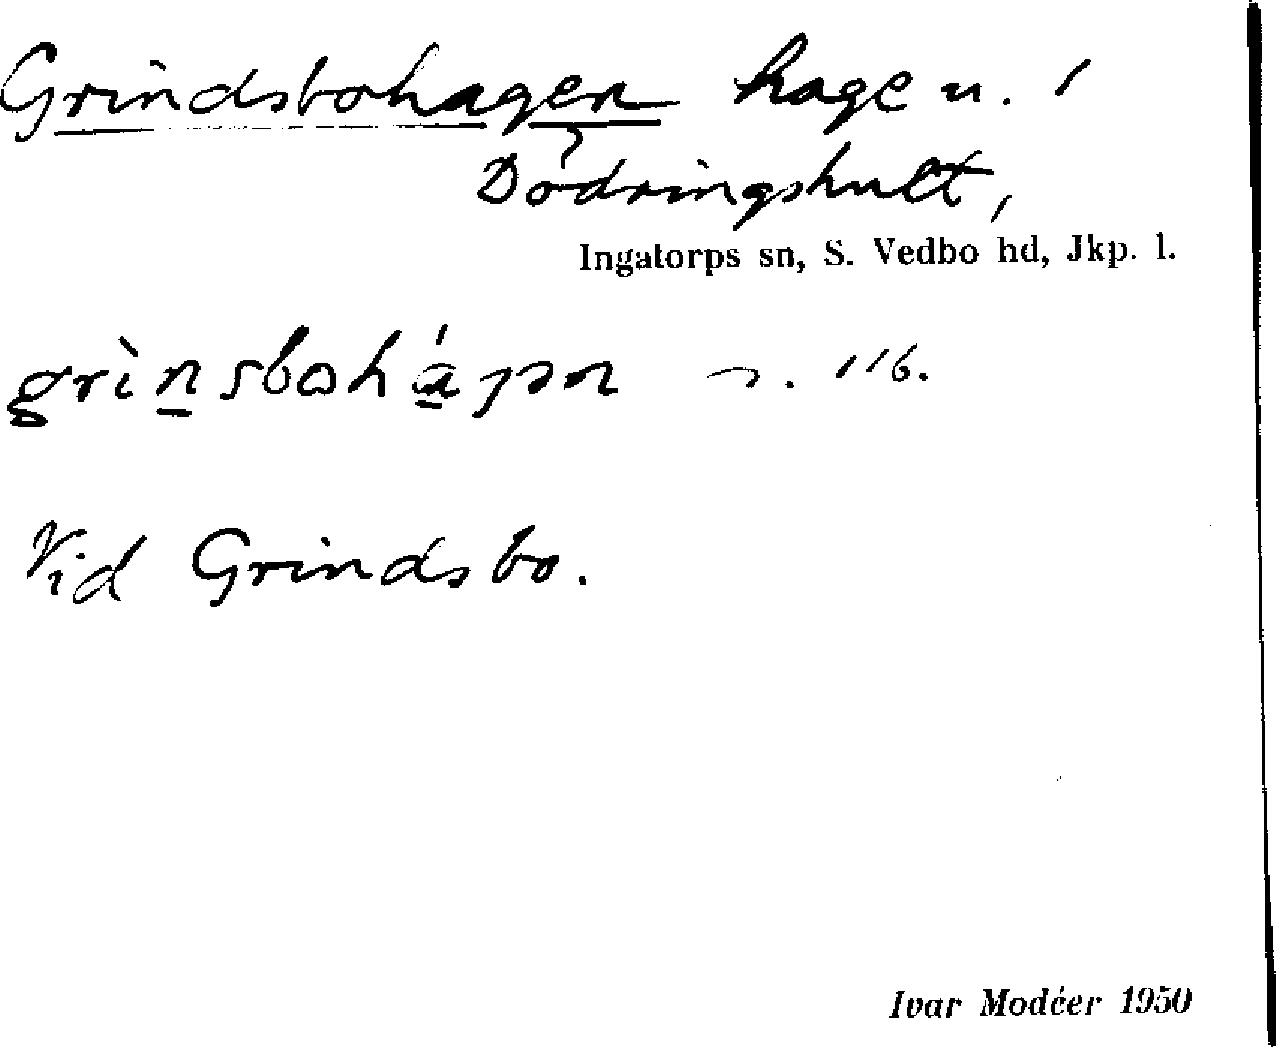 Grindsbohagen hage u. i
Dödringshult,
Ingatorps sn, S. Vedbo hd, Jkp. l.
Vid Grindsbo.
Ivar Modéer 1950